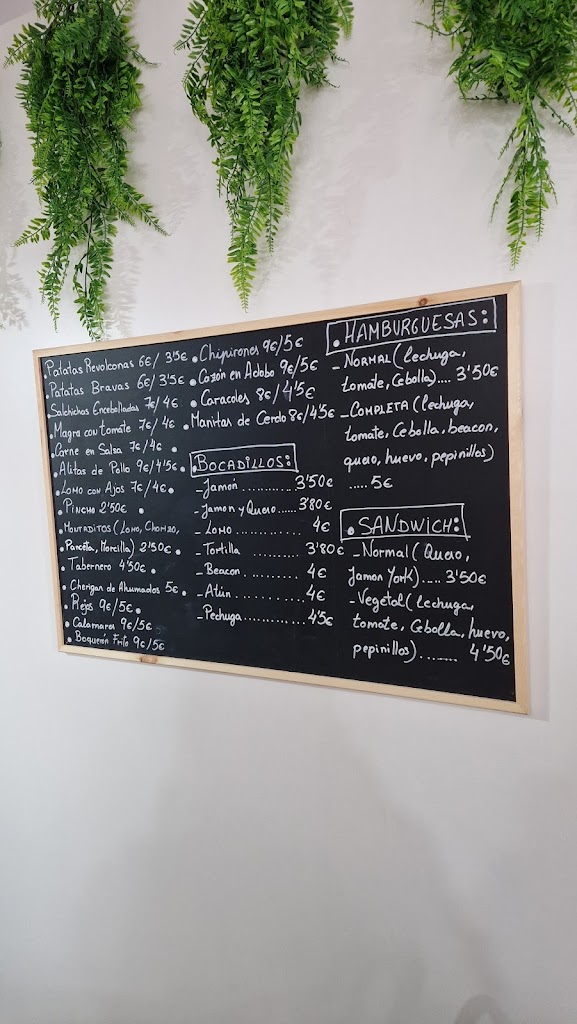 Patatas Revolconas 6€/ 3'5€
Patatas Bravas 6€/ 3'5€
Salchichas Encebolladas 7€/ 4€
Magra con tomate 7€/ 4€
Carne en Salsa 7€/4€
Alitas de Pollo 9€/4'5€
Lomo con Ajos 7€/4€
Pincho 2'50€
Montaditos (Lomo, Chorizo,
Panceta, Morcilla) 2'50€
Tabernero 4'50€
Cherigan de Ahumados 5€
Rejos 9€/5€
Calamares 9€/5€
Boquerón Frito 9€/5€
Chipirones 9€/5€
Cazón en Adobo 9€/5€
Caracoles 8€/4'5€
Manitas de Cerdo 8€/4'5€
BOCADILLOS:
- Jamón .......... 3'50€
- Jamon y Queso ...... 3'80€
- Lomo .............. 4€
- Tortilla .......... 3'80€
- Beacon ............ 4€
- Atún .............. 4€
- Pechuga ............. 4'5€
HAMBURGUESAS:
- NORMAL (lechuga,
tomate, Cebolla).... 3'50€
- COMPLETA (lechuga,
tomate, Cebolla, beacon,
queso, huevo, pepinillos)
..... 5€
SANDWICH:
- Normal (Queso,
Jamon York).... 3'50€
- Vegetal (lechuga,
tomate, Cebolla, huevo,
pepinillos)......... 4'50€